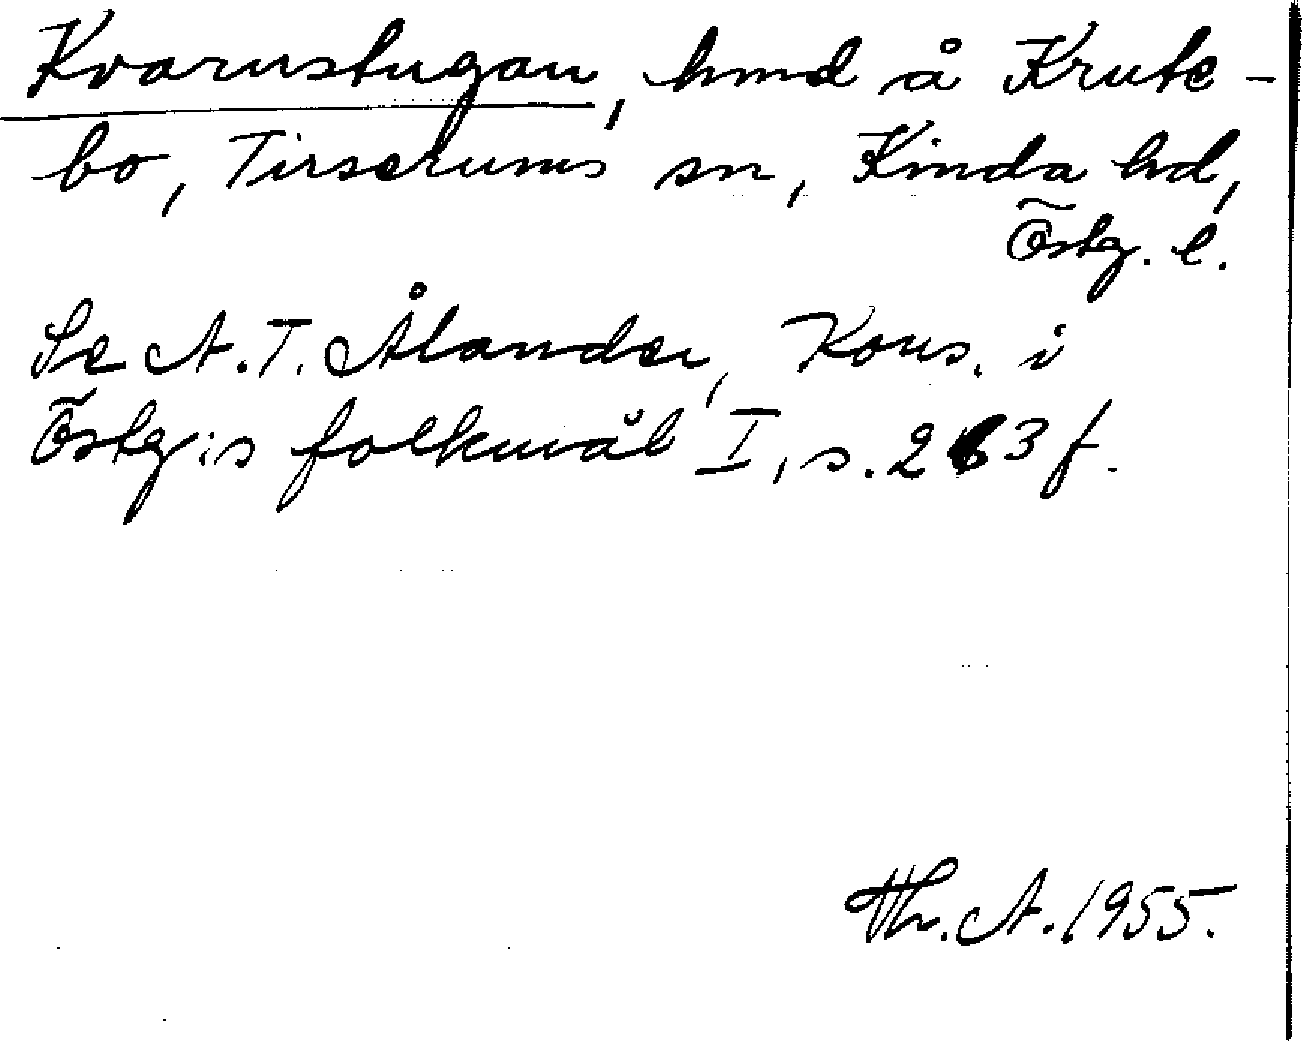 Kvarnstugan, hmd å Krute-
bo, Tirserums sn, Kinda hd,
Östg. l.
Se A. T. Ålander, Kons. i
Östg:s folkmål I, s. 263 f.
Th. A. 1955.